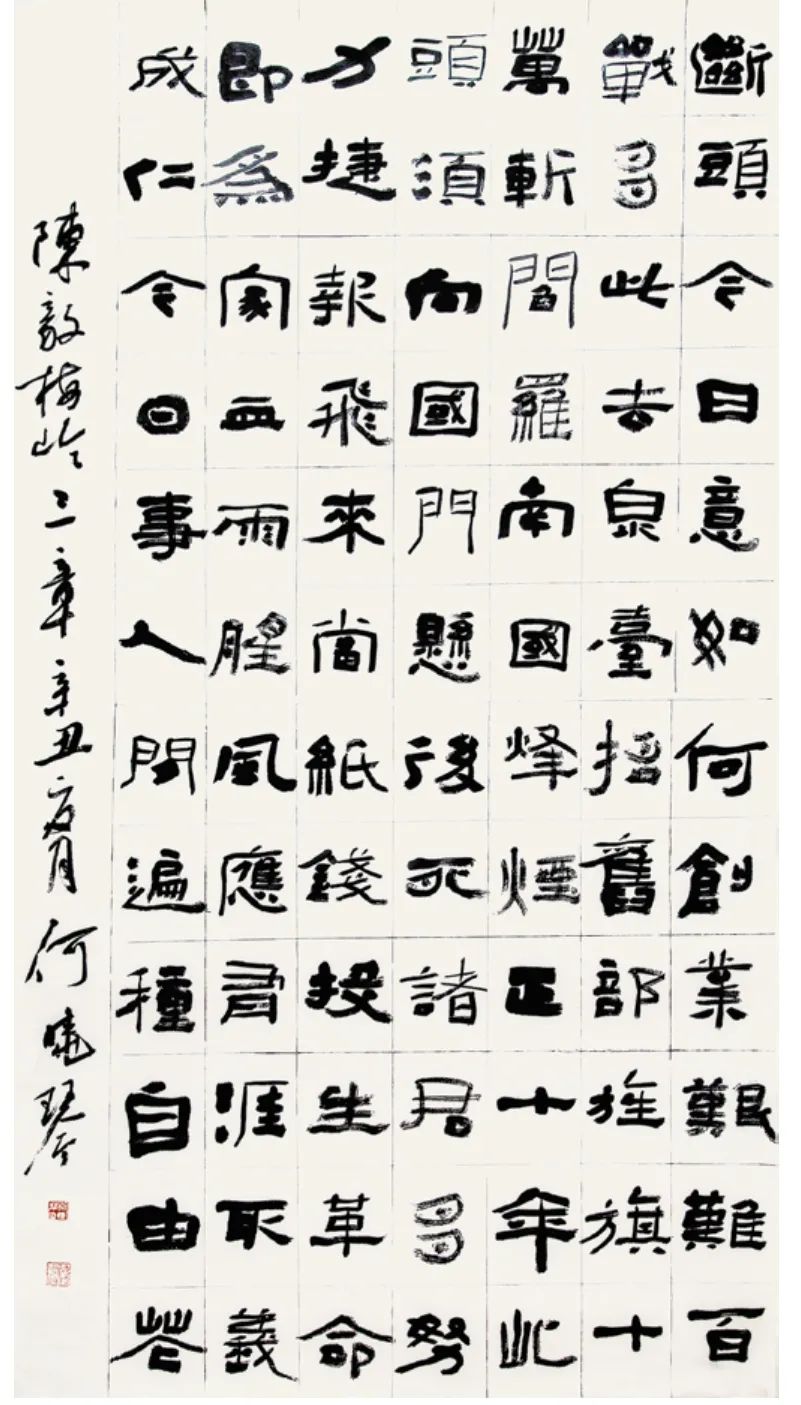 斷頭今日意如何創業艱難百
戰多此去泉臺招舊部旌旗十
萬斬閻羅南國烽煙正十年此
頭須向國門懸後死諸君多努
力捷報飛來當紙錢投生革命
即爲家血雨腥風應有涯取義
成仁今日事人間遍種自由花
陳毅梅岭三章辛丑月何曉琴